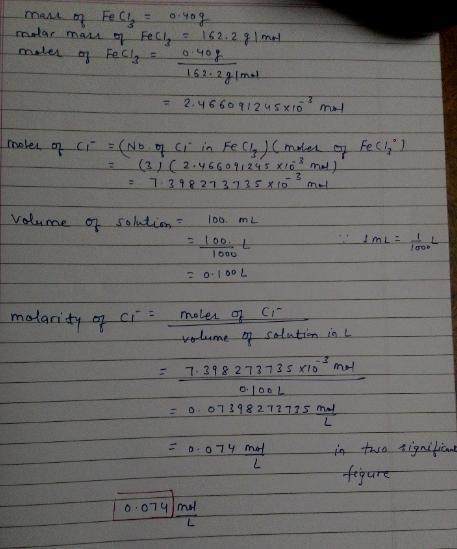 mass of FeCl3 = 0.40g
molar mass of FeCl3 = 162.2 g/mol
moles of FeCl3 = 0.40g
162.2 g/mol
= 2.466091245 x 10^-3 mol
moles of Cl- = (No. of Cl- in FeCl3) (moles of FeCl3)
= (3) (2.466091245 x10^-3 mol)
= 7.398273735 x10^-3 mol
Volume of solution = 100. mL
= 100. L ∵ 1mL = 1/1000 L
1000
= 0.100L
molarity of Cl- = moles of Cl-
volume of solution in L
= 7.398273735 x10^-3 mol
0.100L
= 0.07398273735 mol/L
= 0.074 mol/L in two significant
figure
0.074 mol/L